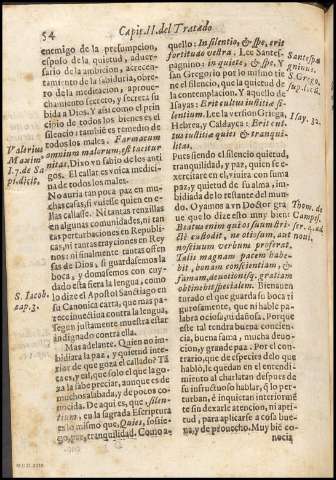 54 Capit. II. del Tratado
enemigo de la presumpcion,
esposo de la quietud, adver-
sario de la ambicion, acrecen-
tamiento de la sabiduria, obre-
ro de la meditacion, aprove-
chamiento secreto, y secreta su
bida a Dios. Y assi como el prin
cipio de todos los bienes es el
silencio: tambiē es remedio de
todos los males. Farmacum
omnium malorum est tacitur
nitas. Dixo vn sabio de los anti
gos. El callar es vnica medicina
de todos los males.
No auria tan poca paz en mu-
chas casas, si vuiesse quien en e-
llas callasse. Ni tantas renzillas
en algunas comunidades, ni tã
tas perturbaciones en Republi-
cas, ni tantas trayciones en Rey
nos: ni finalmente tantas ofen-
sas de Dios, si guardassemos la
boca, y domassemos con cuy-
dado esta fiera la lengua, como
lo dize el Apostol Santiago en
su Canonica carta, que mas pa-
rece inuectiua contra la lengua,
segun justamente muestra estar
indignado contra ella.
Mas adelante. Quien no im-
bidiara la paz, y quietud inte-
rior de que goza el callador? Tã
ta es, y tal, que solo el que la go-
za la sabe preciar, aunque es de
muchos alabada, y de pocos co-
nocida. De aqui es, que, silen-
tium, en la sagrada Escriptura
es lo mismo que, Quies, sossie-
go, paz, tranquilidad. Como a-
Valerius
Maxim'
l. 7. de Sa
pi. dicit.
S. Iacob.
cap. 3.
quello: In silentio, & spe, erit
fortitudo vestra. Lee Santes-
pagnino: in quiete, & spe. Y
san Gregorio por lo mismo tie
ne el silencio, que la quietud de
la contemplacion. Y aquello de
Isayas: Erit cultus iustitiæ si-
lentium. Lee la version Griega,
Hebrea, y Caldayca: Erit cul-
tus iustitiæ quies & tranqui-
litas.
Pues siendo el silencio quietud,
tranquilidad, y paz, quien se e-
xercitare en el, viuira con suma
paz, y quietud de su alma, im-
bidiada de lo restante del mundo.
Oyamos a vn Doctor gra
ue que lo dize esto muy bien:
Beatus enim qui os suum pru-
denti custodit, ne otiosum, aut
noxium verbum proferat.
Talis magnam pacem habe-
bit, bonam conscientiam, &
famam, deuotionisq; gratiam
obtinebit specialem. Bienauen
turado el que guarda su boca si
gurosamente, que ni hable pa-
labra ociosa, ni dañosa. Porque
este tal tendra buena concien-
cia, buena fama, mucha deuo-
cion, y grande paz. Por el con-
trario, que de disgustos del que
hablò, le quedan en el entendi-
miento al charlatan despues de
su infructuoso hablar, q̃ lo per-
turben, è inquietan interiormē
te sin dexarle atencion, ni apti-
tud, para aplicarse a cosa bue-
na, y de prouecho. Muy biē co-
nocia
Santespa
gninus.
S. Grego.
Isay. 32.
Thom. de